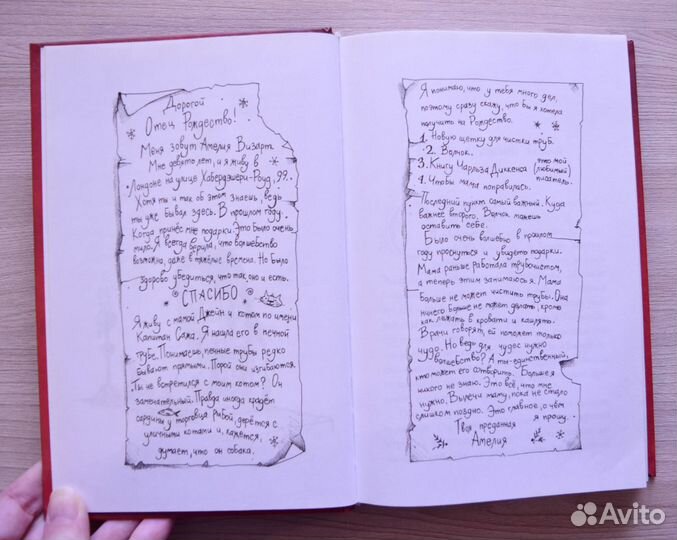 Дорогой
Отец Рождество!
Меня зовут Амелия Визарт.
Мне девять лет, и я живу в
Лондоне на улице Хабердэшери-Роуд, 99.
Хотя ты и так об этом знаешь, ведь
ты уже бывал здесь. В прошлом году.
Когда принёс мне подарки. Это было очень
мило. Я всегда верила, что волшебство
возможно, даже в тяжёлые времена. Но было
здорово убедиться, что так оно и есть.
СПАСИБО
Я живу с мамой Джейн и котом по имени
Капитан Сажа. Я нашла его в печной
трубе. Понимаешь, печные трубы редко
бывают прямыми. Порой они изгибаются.
Ты не встретился с моим котом? Он
замечательный. Правда иногда крадёт
сардины у торговца рыбой дерётся с
уличными котами и, кажется,
думает, что он собака.
Я понимаю, что у тебя много дел,
поэтому сразу скажу, что бы я хотела
получить на Рождество.
1. Новую щётку для чистки труб.
2. Волчок.
3. Книгу Чарльза Диккенса (это мой любимый писатель.)
4. Чтобы мама поправилась.
Последний пункт самый важный. Куда
важнее второго. Волчок можешь
оставить себе.
Было очень волшебно в прошлом
году проснуться и увидеть подарки.
Мама раньше работала трубочистом,
а теперь этим занимаюсь я. Мама
больше не может чистить трубы. Она
ничего больше не может делать, кроме
как лежать в кровати и кашлять.
Врачи говорят, ей поможет только
чудо. Но ведь для чудес нужно
волшебство? А ты-единственный,
кто может его сотворить. Больше я
никого не знаю. Это всё, что мне
нужно. Вылечи маму, пока не стало
слишком поздно. Это главное, о чём
я прошу.
Твоя преданная
Амелия
Avito